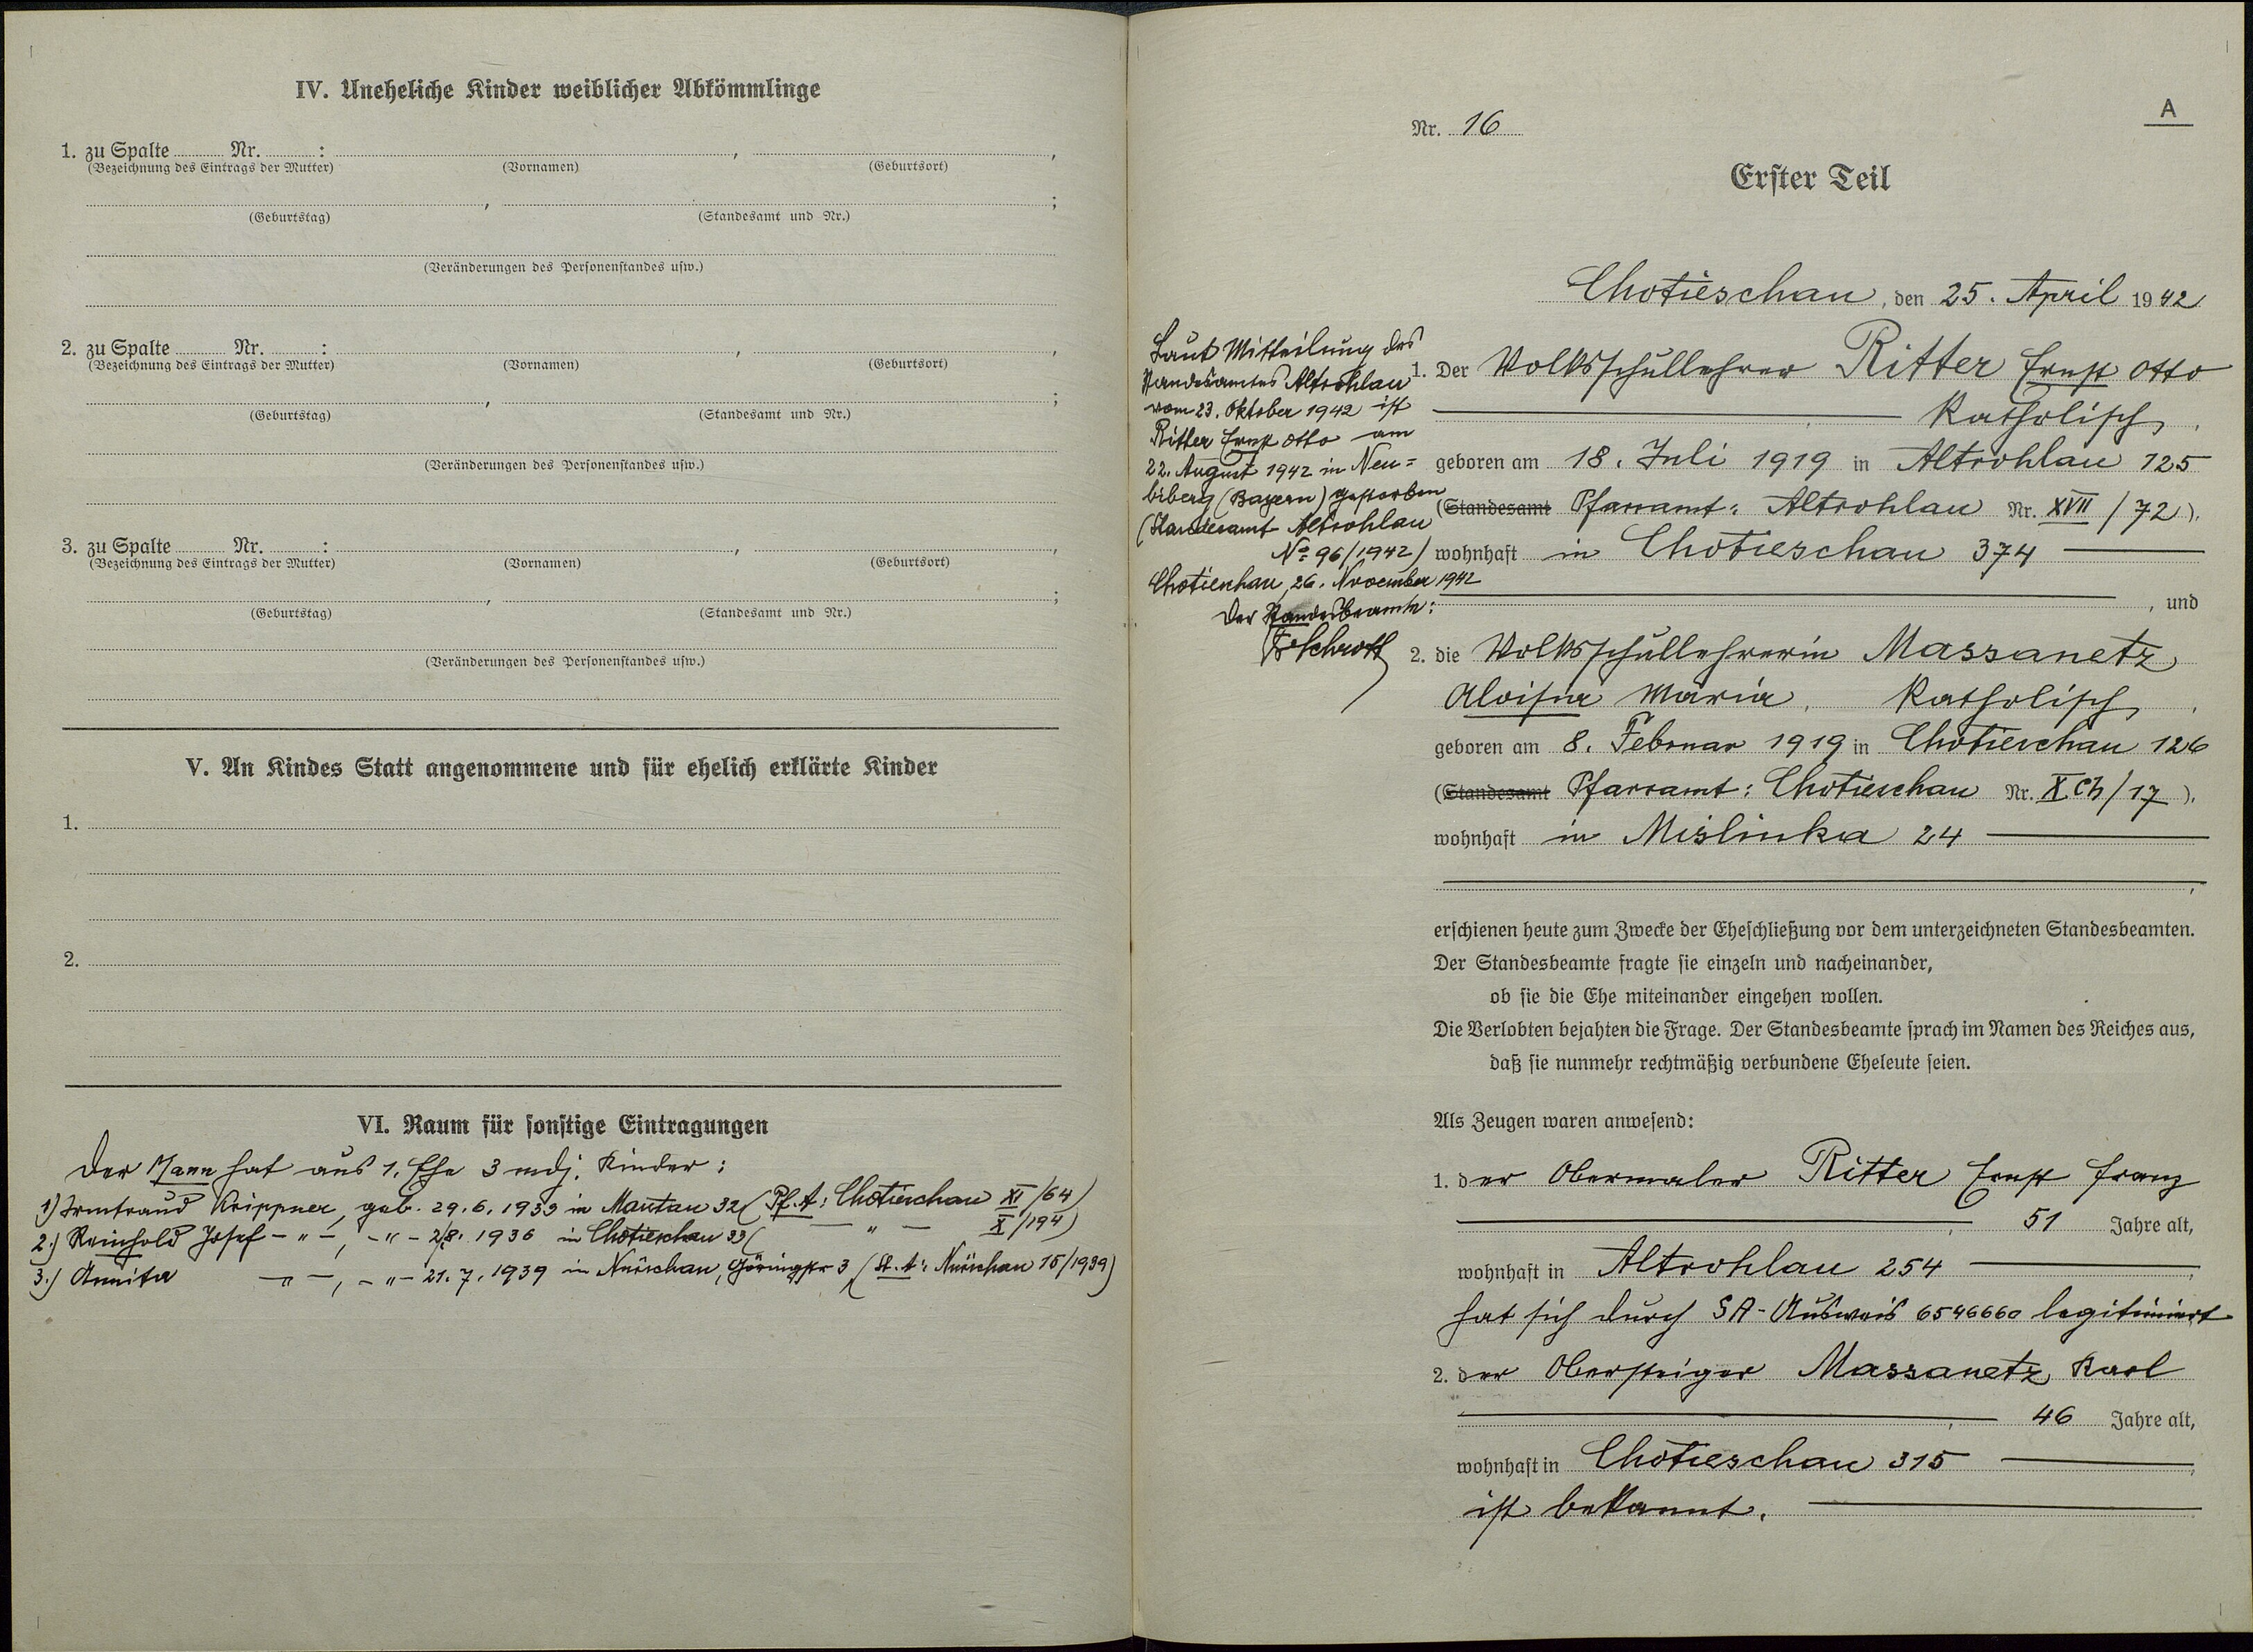 IV. Uneheliche Kinder weiblicher Abkömmlinge
1. zu Spalte Nr. : , ,
(Bezeichnung des Eintrags der Mutter) (Vornamen) (Geburtsort)
, ;
(Geburtstag) (Standesamt und Nr.)
(Veränderungen des Personenstandes usw.)
2. zu Spalte Nr. : , ,
(Bezeichnung des Eintrags der Mutter) (Vornamen) (Geburtsort)
, ;
(Geburtstag) (Standesamt und Nr.)
(Veränderungen des Personenstandes usw.)
3. zu Spalte Nr. : , ,
(Bezeichnung des Eintrags der Mutter) (Vornamen) (Geburtsort)
, ;
(Geburtstag) (Standesamt und Nr.)
(Veränderungen des Personenstandes usw.)
V. An Kindes Statt angenommene und für ehelich erklärte Kinder
1.
2.
VI. Raum für sonstige Eintragungen
Der Mann hat aus 1. Ehe 3 mdj. Kinder:
1.) Irmtraud Krippner, geb. 29.6.1933 in Mantau 32 (Pf.A: Chotieschau XI/64)
2.) Reinhold Josef -"-, -"- 2/8. 1936 in Chotieschau 33 ( -"- X/194)
3.) Annita -"-, -"- 21.7.1939 in Nürschan, Göringstr 3 (St.A: Nürschan 15/1939)
A
Nr. 16
Erster Teil
Chotieschau, den 25. April 1942
Laut Mitteilung des
Standesamtes Altrohlau
vom 23. Oktober 1942 ist
Ritter Ernst Otto am
22. August 1942 in Neu=
biberg (Bayern) gestorben
(Standesamt Altrohlau
No 96/1942)
Chotieschau, 26. November 1942
Der Standesbeamte:
Schrott
1. Der Volksschullehrer Ritter Ernst Otto
Katholisch,
geboren am 18. Juli 1919 in Altrohlau 125
(Standesamt Pfarramt: Altrohlau Nr. XVII/72),
wohnhaft in Chotieschau 374
, und
2. die Volksschullehrerin Massanetz
Aloisia Maria, Katholisch,
geboren am 8. Februar 1919 in Chotieschau 126
(Standesamt Pfarramt: Chotieschau Nr. X Ch/17),
wohnhaft in Mislinka 24
,
erschienen heute zum Zwecke der Eheschließung vor dem unterzeichneten Standesbeamten.
Der Standesbeamte fragte sie einzeln und nacheinander,
ob sie die Ehe miteinander eingehen wollen.
Die Verlobten bejahten die Frage. Der Standesbeamte sprach im Namen des Reiches aus,
daß sie nunmehr rechtmäßig verbundene Eheleute seien.
Als Zeugen waren anwesend:
1. der Obermaler Ritter Ernst Franz
, 51 Jahre alt,
wohnhaft in Altrohlau 254,
hat sich durch SA-Ausweis 6546660 legitimiert
2. der Obersteiger Massanetz Karl
, 46 Jahre alt,
wohnhaft in Chotieschau 315,
ist bekannt.